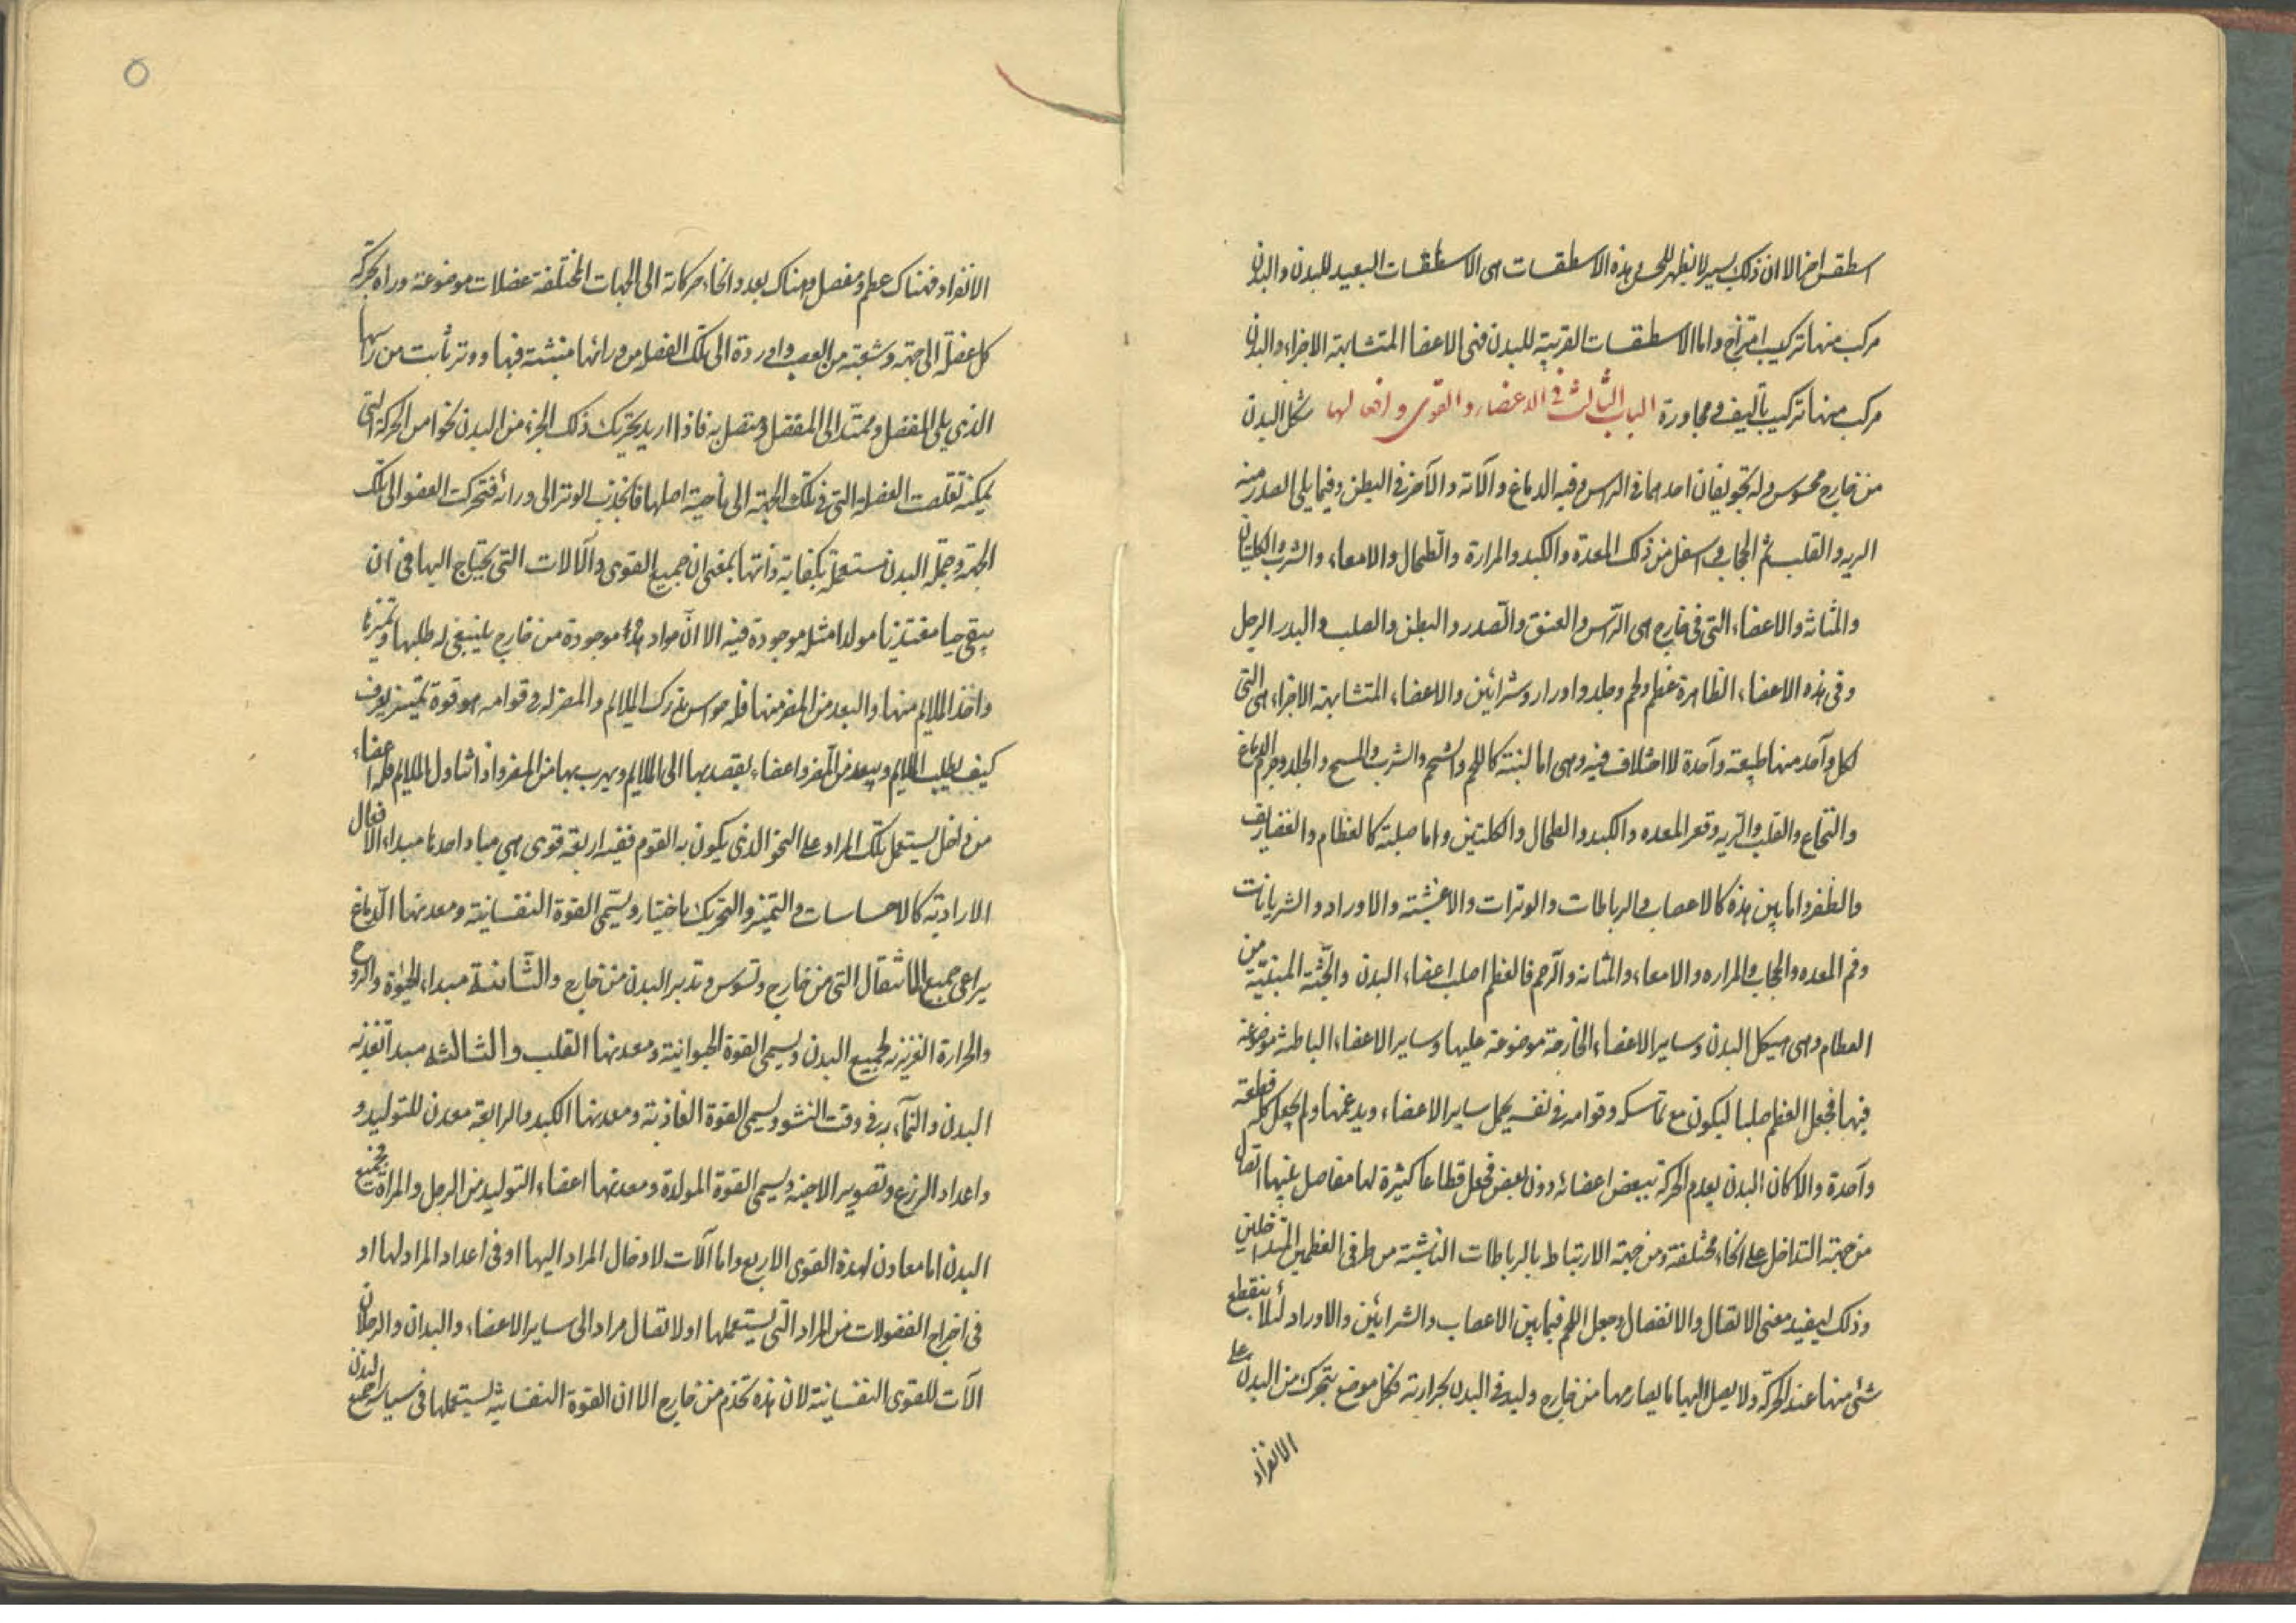 اسطقس اخر الا ان ذلك يسير لا يظهر للحس و هذه الاسطقسات هى الاسطقسات البعيد للبدن والبدن
مركب منها تركيب امتزاج واما الاسطقسات القريبة للبدن فهى الاعضا المتشابهة الاجزاء والبدن
مركب منها تركيب تأليف و مجاورة الباب الثالث فى الاعضاء والقوى وافعالها شكل البدن
من خارج محسوس وله تجويفان احدهما فى الراس وفيه الدماغ وآلاته والآخر فى البطن وفيما يلى الصدر منه
الريه والقلب ثم الحجاب و اسفل من ذلك المعدة والكبد والمرارة والطحال والامعاء والثرب والكليتان
والمثانة والاعضاء التى فى خارج هى الرّاس والعنق والصّدر والبطن والصلب و اليد والرجل
وفى هذه الاعضاء الظاهرة عظم ولحم وجلد واوراد وشرائين والاعضاء المتشابهة الاجزاء هى التى
لكل واحد منها طبيعة واحدة لا اختلاف فيه وهى اما لينة كاللحم والشحم والثرب والمخ والجلد وجرم الدماغ
والنخاع والقلب والريه وقعر المعده والكبد والطحال والكليتين واما صلبة كالعظام والغضاريف
والظفر واما بين هذه كالاعصاب والرباطات والوترات والاغشية والاوراد والشريانات
وفم المعده والحجاب والمراره والامعاء والمثانه والرّحم فالعظم اصلب اعضاء البدن والجثّة المبنيّة من
العظام وهى هيكل البدن وساير الاعضاء الخارجة موضوعة عليها وساير الاعضاء الباطنة موضوعة
فيها فجعل العظم صلبا ليكون مع تماسكه وقوامه فى نفسه يحمل ساير الاعضاء ويدعمها ولم يجعل كله قطعة
واحدة والا كان البدن يعدم الحركة ببعض اعضائه دون بعض فجعل قطاعا كثيرة لها مفاصل بينها اتصال
من جهة التداخل على انحاء مختلفة ومن جهة الارتباط بالرباطات الناشئة من طرفى العظمين المتداخلين
وذلك ليفيد معنى الاتصال والانفصال وجعل اللحم فيما بين الاعصاب والشرائين والاوراد لئلا ينقطع
شئ منها عند الحركة ولا يصل اليها ما يصادمها من خارج وليدفى البدن بحرارته فكل موضع يتحرك من البدن على
الانفراد
الانفراد فهناك عظم ومفصل وهناك بعدد انحاء حركاته الى الجهات المختلفة عضلات موضوعة وراه تحركه
كل عضلة الى جهة وشعبة من العصب واردة الى تلك العضل من ورائها منبثة فيها ووتر نابت من راسها
الذى يلى المفصل وممتدّ الى المفصل ومتصل به فاذا اريد تحريك ذلك الجزء من البدن نحوا من الحركة التى
يمكنه تقلصت العضلة التى فى تلك الجهة الى ناحية اصلها فانجذب الوتر الى ورائه فتحركت العضو الى تلك
الجهة وجملة البدن مستعملة بكفاية ذاتها بمعنى ان جميع القوى والآلات التى يحتاج اليها فى ان
يبقى حيا مغتذيا مولدا مثله موجودة فيه الا انّ مواد هذه موجودة من خارج ينبغى له طلبها وتميزها
واخذ الملايم منها والبعد من المضر منها فله حواس تدرك الملايم والمضر له و قوامه هو قوة تمييز يعرف
كيف يطلب الملايم ويبعد من المضر واعضاء يقصد بها الى الملايم ويهرب بها من المضر واذا تناول الملايم فله اعضاء
من داخل يستعمل تلك المواد على النحو الذى يكون به القوم ففيه اربعة قوى هى مباد احدها مبداء الافعال
الارادية كالاحساسات والتميز والتحريك باختيار ويسمّى القوة النفسانية ومعدنها الدّماغ
يراعى جميع الاشغال التى من خارج وتسوس وتدبر البدن من خارج والثانية مبداء الحيوة والروح
والحرارة الغريزية لجميع البدن ويسمى القوة الحيوانية ومعدنها القلب والثالثه مبدأ تغذية
البدن والنّماء به فى وقت النشو ويسمى القوة الغاذية ومعدنها الكبد والرابعة معدن للتوليد و
واعداد الزرع وتصوير الاجنه ويسمى القوة المولدة ومعدنها اعضاء التوليد من الرجل والمراة فجميع
البدن اما معادن لهذه القوى الاربع واما آلات لادخال المراد اليها او فى اعداد المراد لها او
فى اخراج الفضولات من المراد التى يستعملها او لاتصال مراد الى ساير الاعضاء واليدان والرجلان
آلات للقوى النفسانية لان هذه تخدم من خارج الا ان القوة النفسانية يستعملها فى سياسة جميع البدن